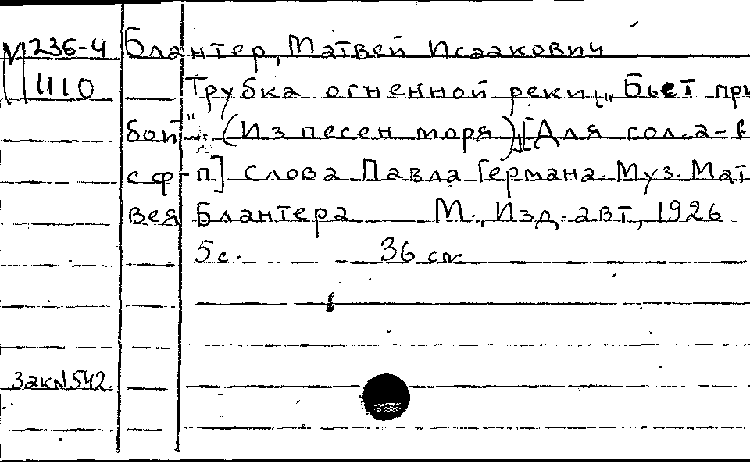 М 236-4 Блантер, Матвей Исаакович
1110 Трубка огненной реки „Бьет при
бой" (Из песен моря) [Для гол. а-в
с ф-п] Слова Павла Германа. Муз. Мат
вея Блантера М., Изд. авт, 1926
5 с. 36 см
Зак № 542